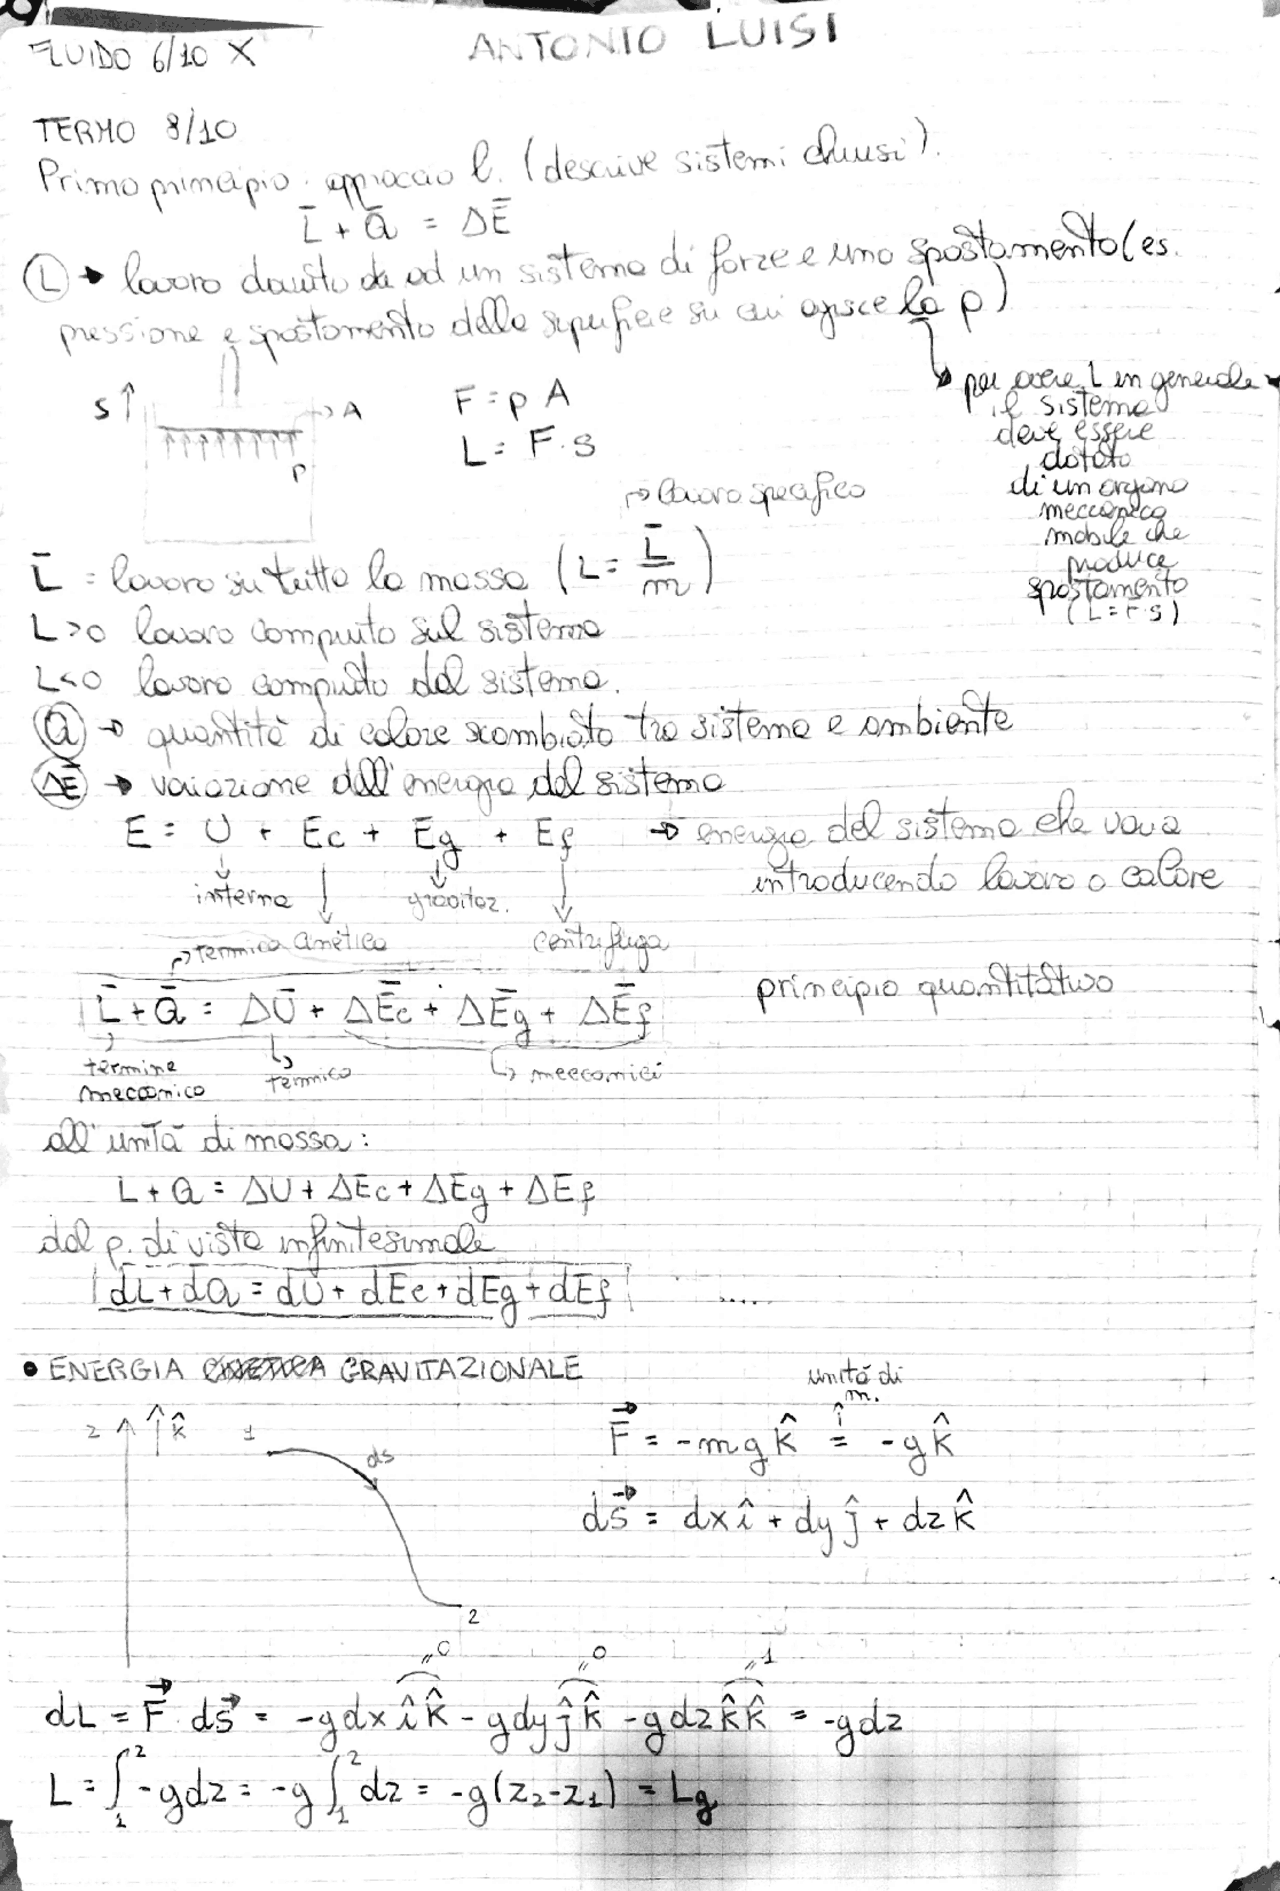 FLUIDO 6/10 X
ANTONIO LUISI
TERMO 8/10
Primo principio: approccio l. (descrive sistemi chiusi).
L̄ + Q̄ = ΔĒ
(L) → lavoro dovuto ad un sistema di forze e uno spostamento (es.
pressione e spostamento della superficie su cui agisce la p)
→ per avere L in generale
il sistema
deve essere
dotato
di un organo
meccanico
mobile che
produce
spostamento
(L=F·s)
S ↑
→ A
p
F = p A
L = F·s
→ lavoro specifico
L̄ = lavoro su tutta la massa (L = L̄/m)
L>0 lavoro compiuto sul sistema
L<0 lavoro compiuto dal sistema.
(Q) → quantità di calore scambiato tra sistema e ambiente
(ΔE) → variazione dell'energia del sistema
E = U + Ec + Eg + Ef → energia del sistema che varia
introducendo lavoro o calore
interna
gravitaz.
cinetica
centrifuga
→ termico
L̄ + Q̄ = ΔŪ + ΔĒc + ΔĒg + ΔĒf
principio quantitativo
termine
meccanico
↳ termico
↳ meccanici
all'unità di massa:
L + Q = ΔU + ΔEc + ΔEg + ΔEf
dal p. di vista infinitesimale
dL + dQ = dU + dEc + dEg + dEf .....
• ENERGIA GRAVITAZIONALE
unità di
m.
z ↑ ↑ k̂
1
ds
2
F⃗ = -mg k̂ = -g k̂
ds⃗ = dx î + dy ĵ + dz k̂
=0 =0 =1
dL = F⃗ · ds⃗ = -g dx î k̂ - g dy ĵ k̂ - g dz k̂ k̂ = -g dz
L = ∫₁² -g dz = -g ∫₁² dz = -g(z₂-z₁) = Lg